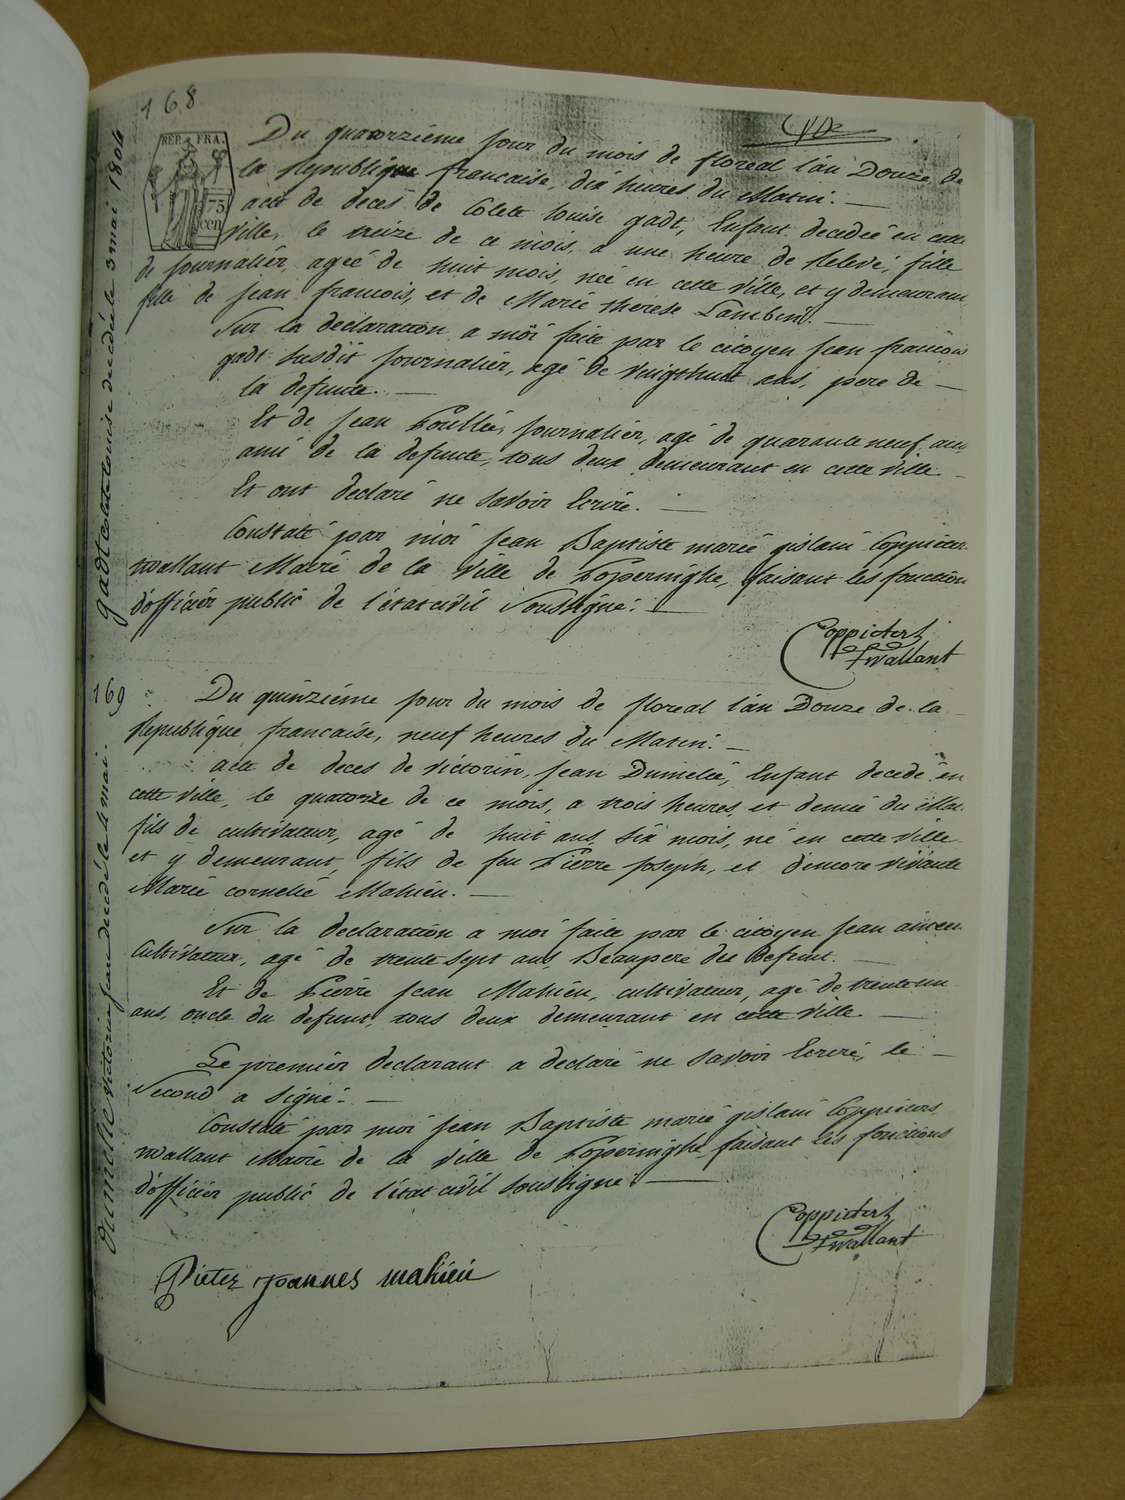 168
REP. FRA.
75
cen
gadt colete louise decedé le 3 mai 1804
Du quatorziéme jour du mois de floreal l'an Douze de
la republique francaise, dix heures du Matin. —
acte de decès de Colete louise gadt, Enfant decedeé en cette
ville, le treize de ce mois, a une heure de Relevé, fille
de journaliér, ageé de huit mois, neé en cette ville, et y demeurant
fille de jean francois, et de Marie therese Lambin. —
Sur la declaration a moi faite par le citoyen jean francois
gadt susdit journaliér, agé de vingthuit ans, pere de —
la defunte. —
Et de jean journaliér, agé de quarante neuf ans
ami de la defunte, tous deux demeurant en cette ville. —
Et ont declaré ne savoir Ecrire. —
Constaté par moi jean Baptiste marie gislain Coppieters
wallant Maire de la ville de Poperinghe, faisant les fonctions
d'officiér public de l'état civil Soussigné. —
Coppieters
twallant
169
Dumelié victorin jean decedé le 4 mai.
Du quinziéme jour du mois de floreal l'an Douze de la —
Republique francaise, neuf heures du Matin. —
acte de deces de victorin, jean Dumelié, Enfant decedé en
cette ville, le quatorze de ce mois, a trois heures et demie du Mat.
fils de cultivateur, agé de huit ans six mois, né en cette ville
et y demeurant, fils de feu Pierre joseph, et d'encore vivante
Marie cornelie Mahieu. —
Sur la declaration a moi faite par le citoyen jean
Cultivateur, agé de trente sept ans, Beaupere du Defunt. —
Et de Pierre jean Mahieu, cultivateur, agé de trente un
ans, oncle du defunt, tous deux demeurant en cette ville. —
Le premiér declarant a declaré ne savoir Ecrire, le —
Second a signé. —
Constaté par moi jean Baptiste marie gislain Coppieters
wallant Maire de la ville de Poperinghe faisant les fonctions
d'officiér public de l'état civil soussigné. —
Coppieters
twallant
Pieter joannes mahieu